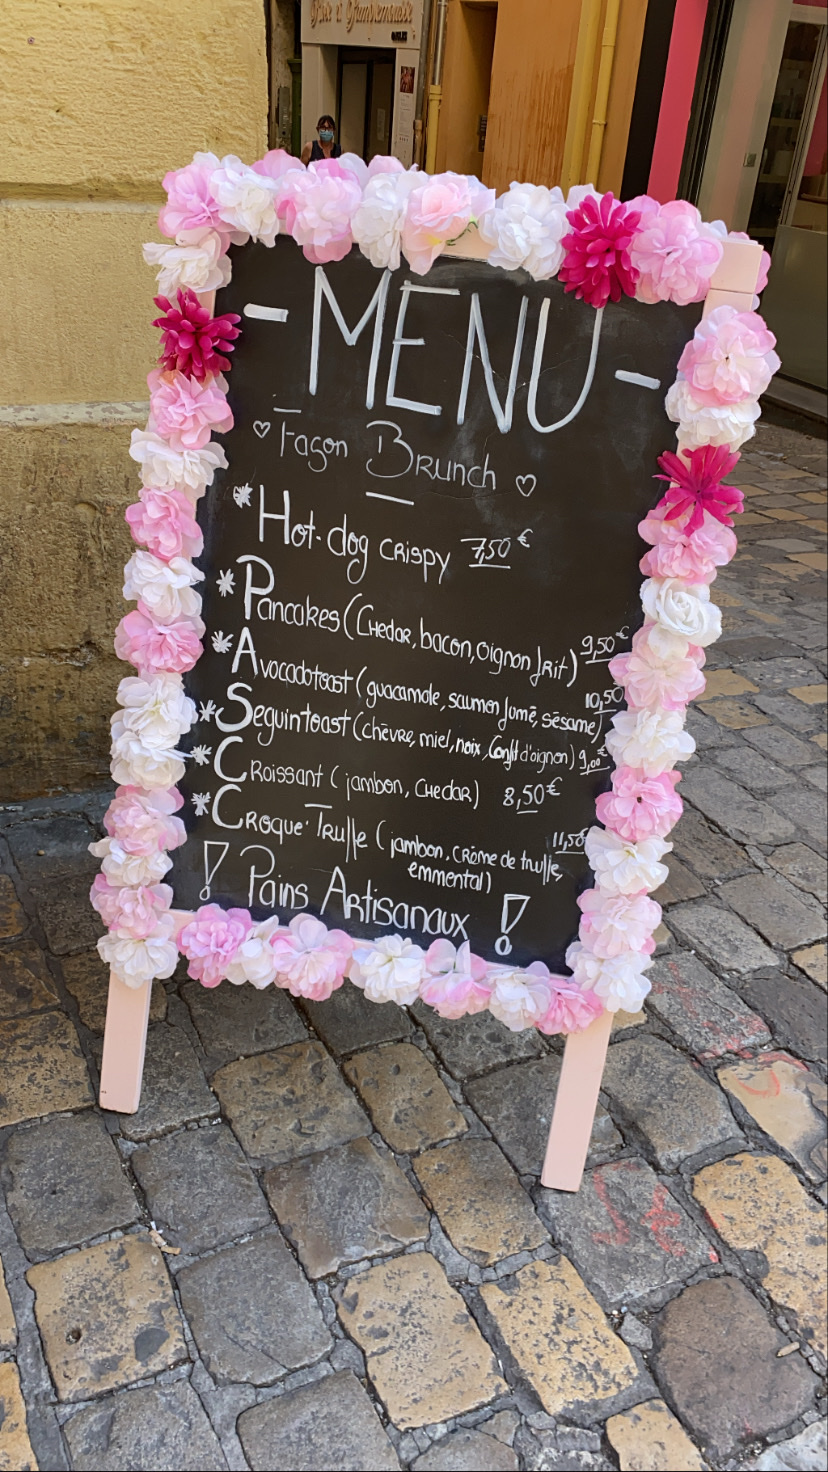 - MENU -
♡ Façon Brunch ♡
* Hot-dog crispy 7,50€
* Pancakes (Chedar, bacon, oignon frit) 9,50€
* Avocadotoast (guacamole, saumon fumé, sésame) 10,50
* Seguintoast (chèvre, miel, noix, Confit d'oignon) 9,00€
* Croissant (jambon, chedar) 8,50€
* Croque-Truffe (jambon, crème de truffe, 11,50€
emmental)
! Pains Artisanaux !